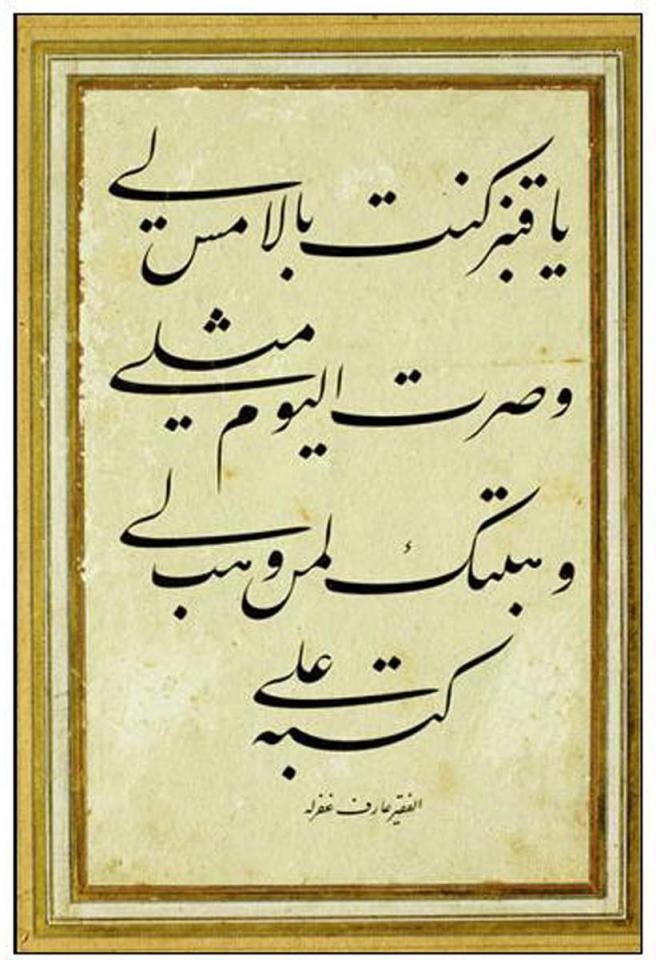 يا قنبر كنت بالامس لي
وصرت اليوم مثلي
وهبتك لمن وهب لي
كتبه علي
الفقير عارف غفرله